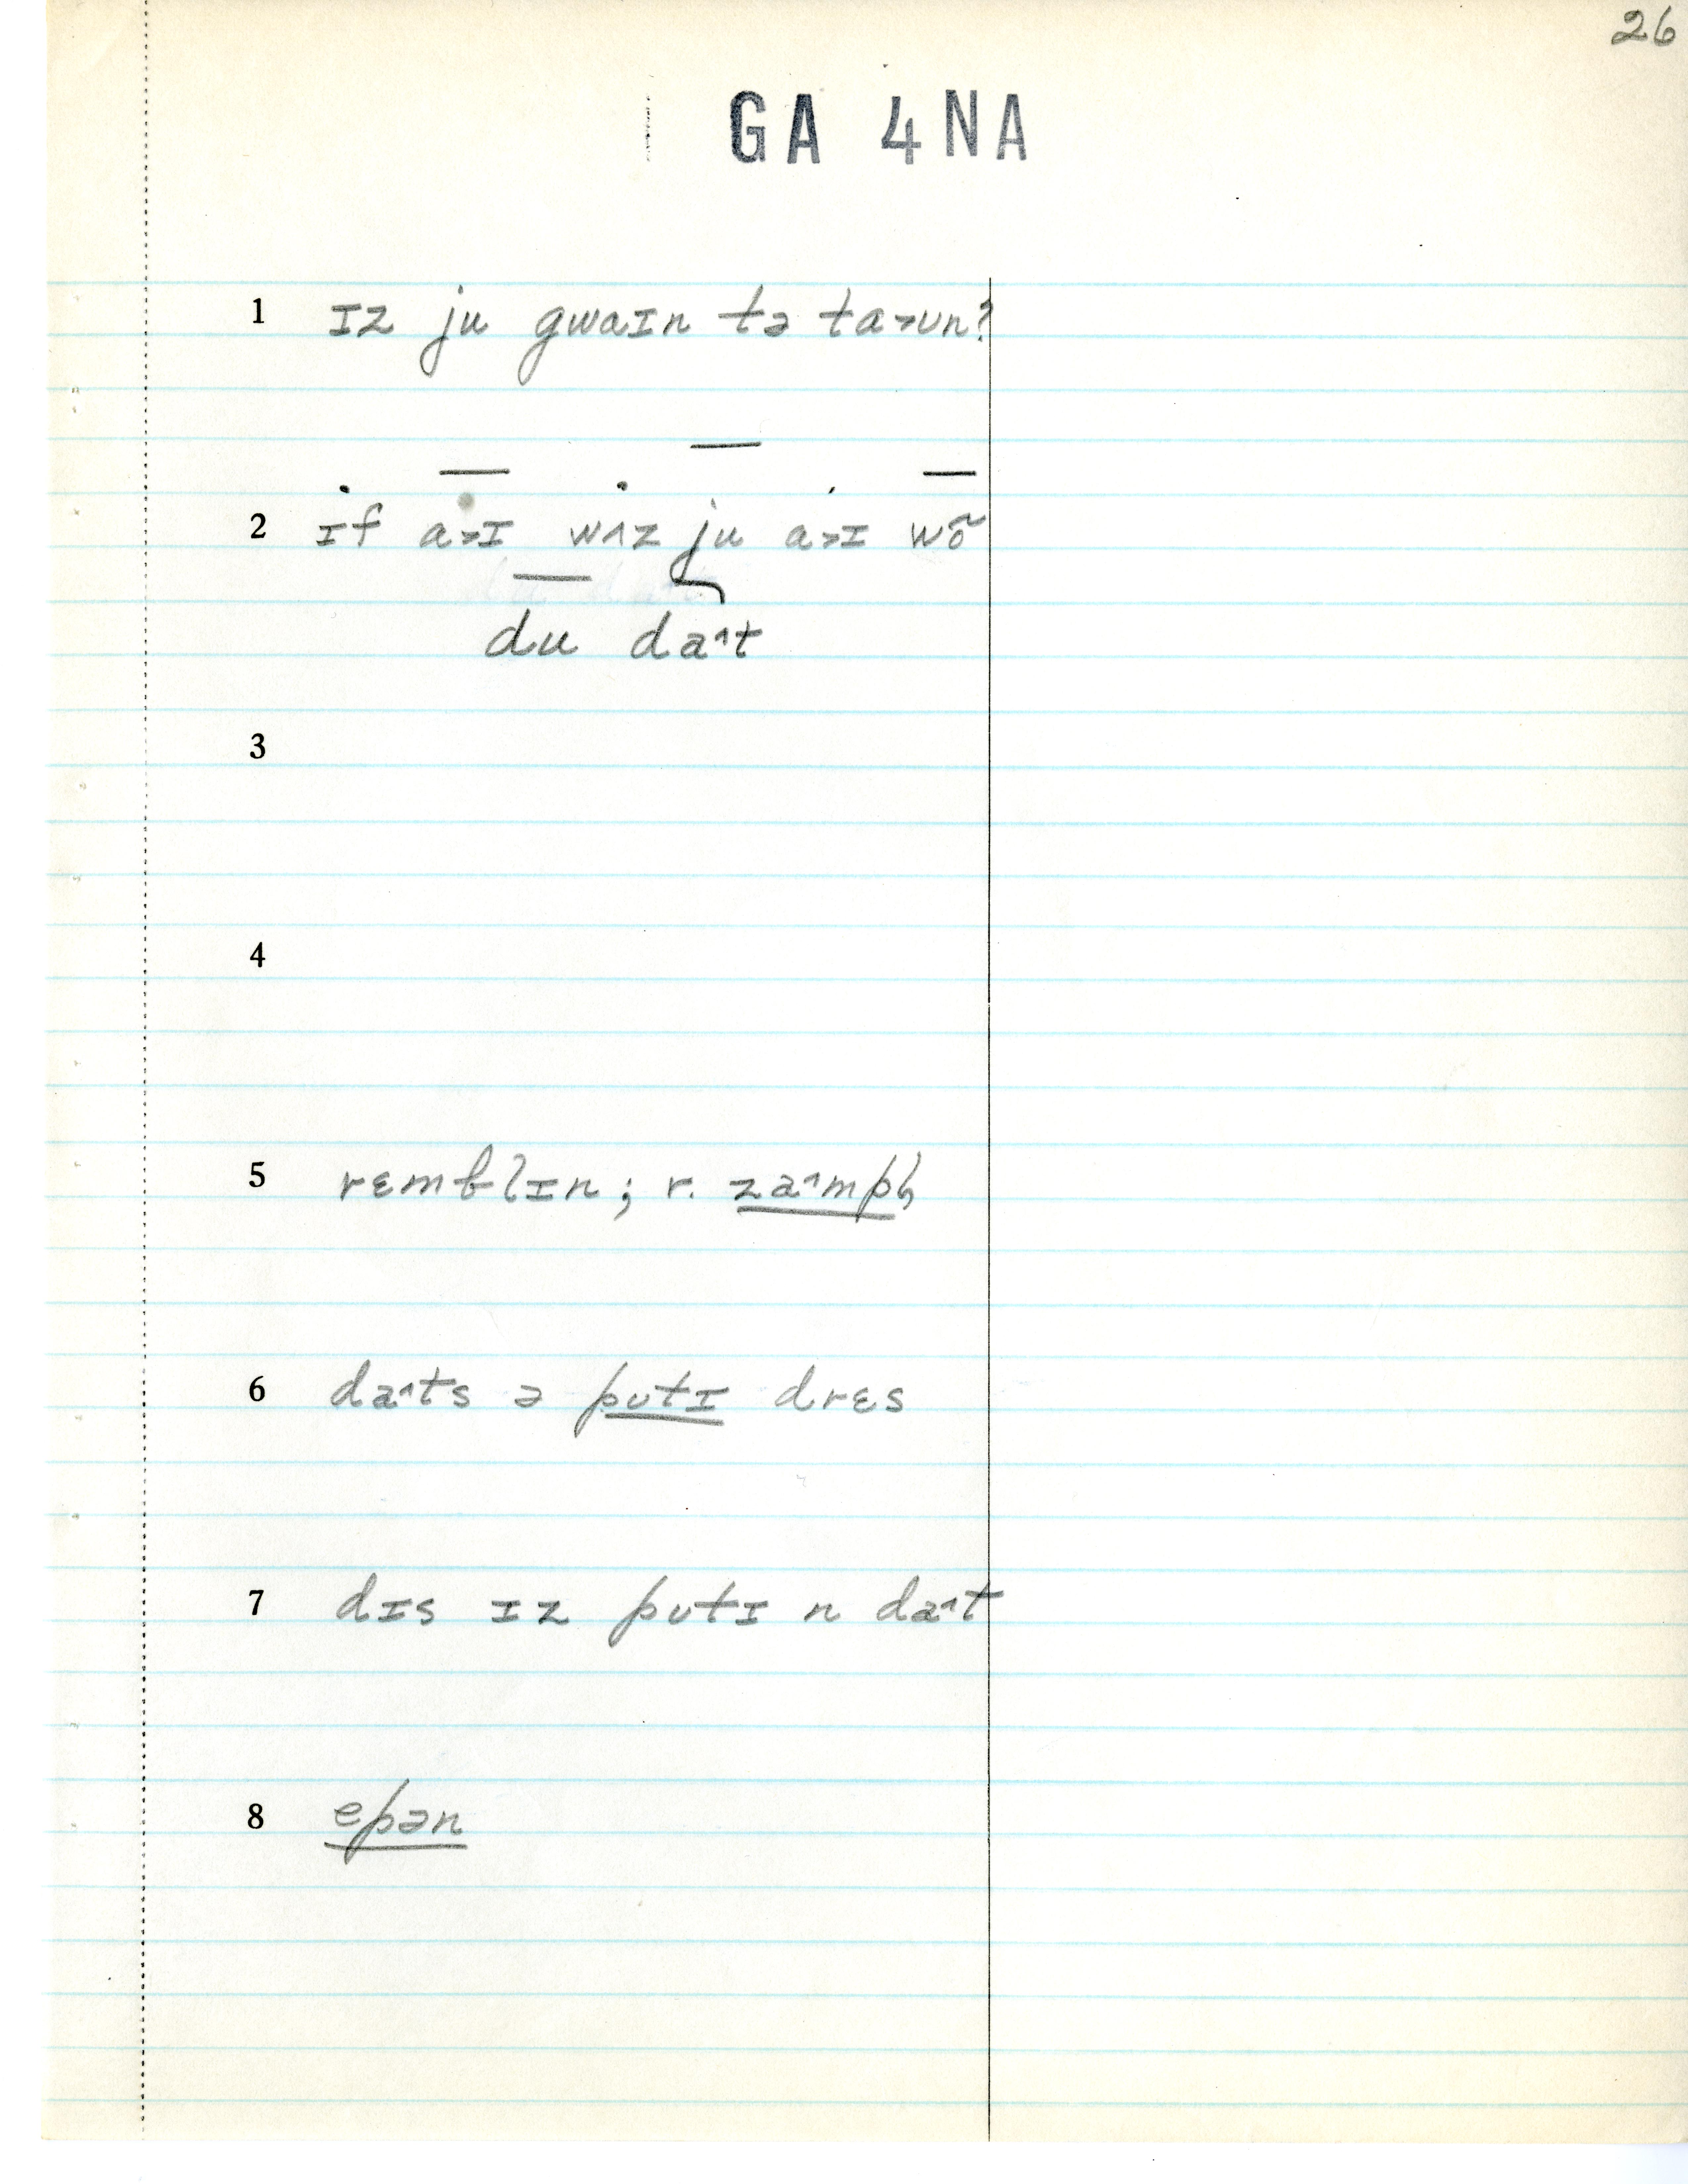 26
GA 4NA
1 ɪz ju gwaɪn tə ta˃ʊn?
2 ɪf a˃ɪ wʌz ju a˃ɪ wõ
du da˄t
3
4
5 rɛmblɪn; r. za˄mpḷ
6 da˄ts ə pʊtɪ drɛs
7 dɪs ɪz pʊtɪ n da˄t
8 epən